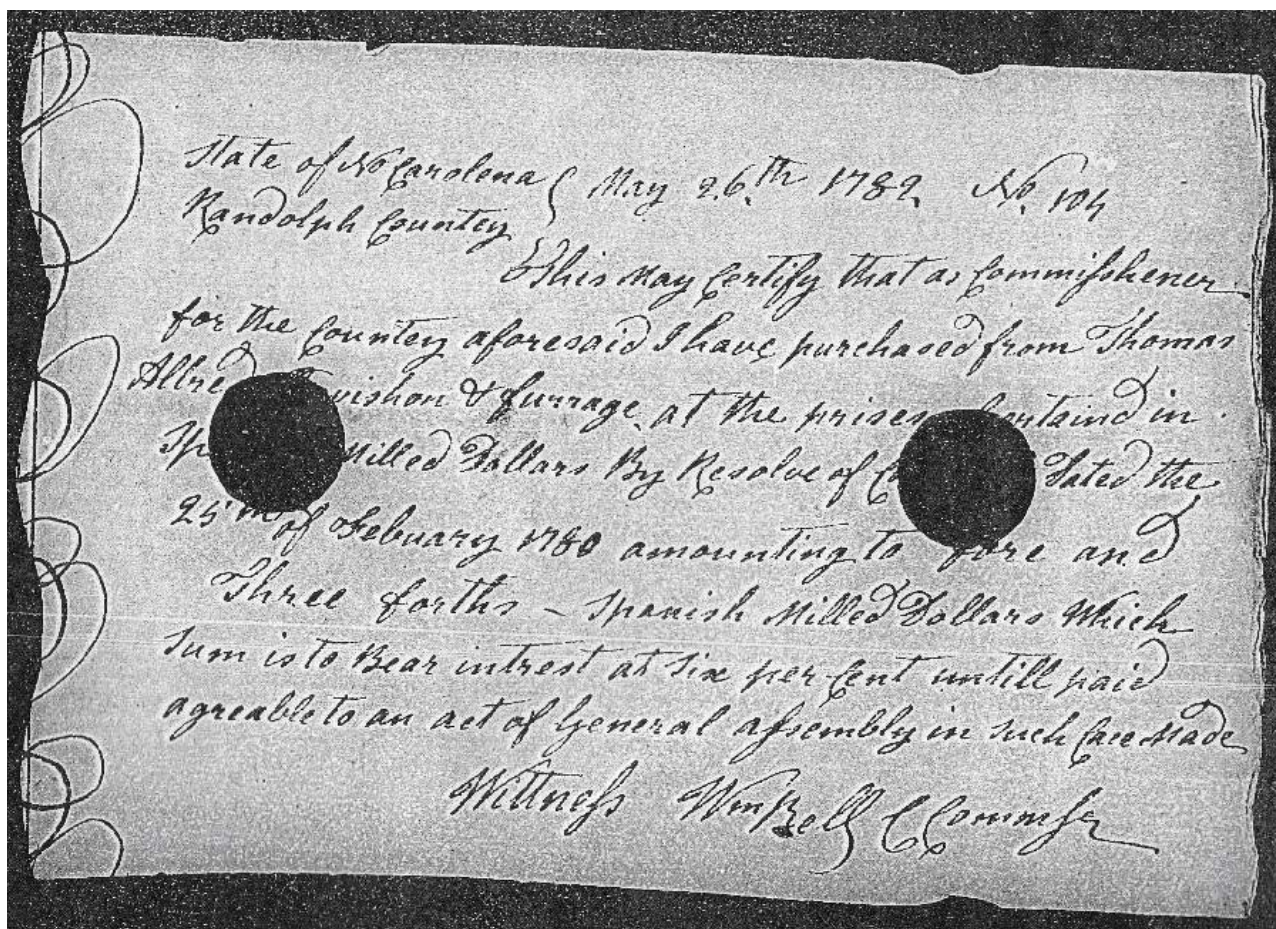 State of No Carolena } May 26.th 1782 No. 104
Randolph Countey
This May Certify that as Commisshener
for the Countey aforesaid I have purchased from Thomas
Allred & furrage at the prises Containd in
Milled Dollars By Resolve of Dated the
25 of Febuary 1780 amounting to fore and
Three forths - Spanish Milled Dollars Which
Sum is to Bear intrest at Six per Cent untill paid
agreable to an act of General assembly in such Case Made
Wittness Wm Bell C Commsr